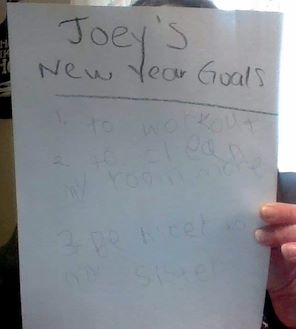 Joey's
New Year Goals
1. to workout
2. to clean
my room more
3. be nicer to
my sister